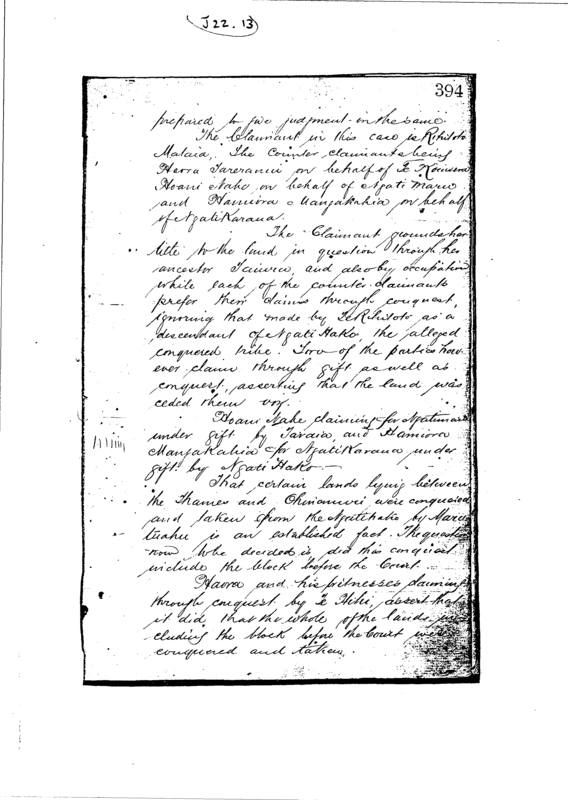 J22.13
394
prepared to give judgment in the same.
The Claimant in this case is Rihitoto
Mataia, The Counter claimants being
Haora Tareranui on behalf of Te
Hoani Nahe on behalf of Ngati Maru
and Hamiora Mangakahia on behalf
of Ngati Karaua.
The Claimant grounds her
title to the land in question through her
ancestor and also by occupation
while each of the counter claimants
prefer their claims through conquest,
ignoring that made by Rihitoto as a
descendant of Ngati Hako, the alleged
conquered tribe. Two of the parties how
ever claim through gift as well as
conquest, asserting that the land was
ceded them viz.
Hoani Nahe claiming for Ngatimaru
under gift by Taraia, and Hamiora
Mangakahia for Ngati Karaua under
gift by Ngati Hako —
That certain lands lying between
the Thames and Ohinemuri were conquered
and taken from the Ngatihako by Maru
tuahu is an established fact. The question
now to be decided is, did this conquest
include the block before the Court.
Haora and his witnesses claiming
through conquest by Te Hihi, assert that
it did, that the whole of the lands in
cluding the block before the Court were
conquered and taken.